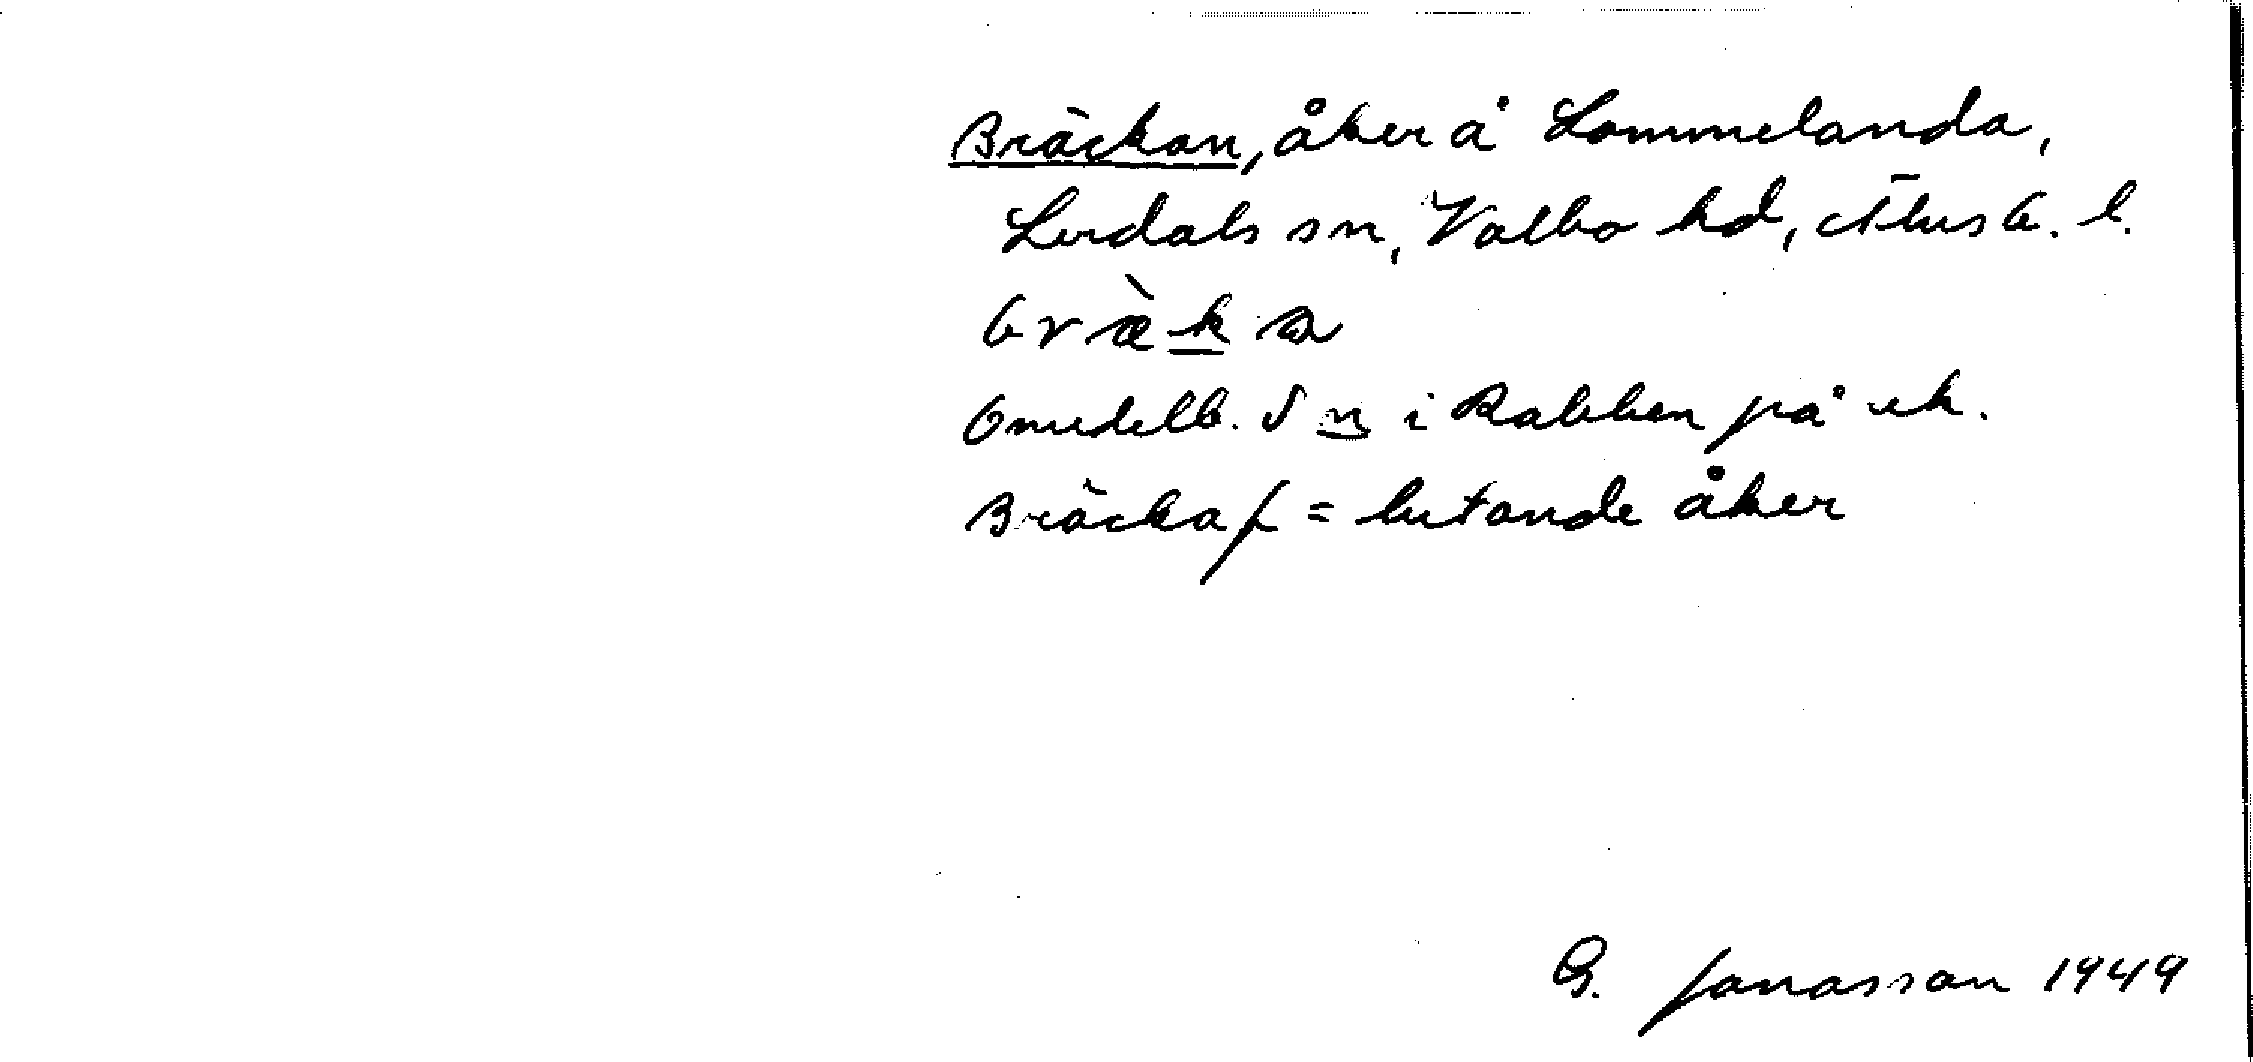 Bräckan, åker å Lommelanda,
Lerdals sn, Valbo hd, Älvsb. l.
bræ̀k
Omedelb. S n i Rabben på ek.
Bräcka f = lutande åker
G. Jonasson 1949